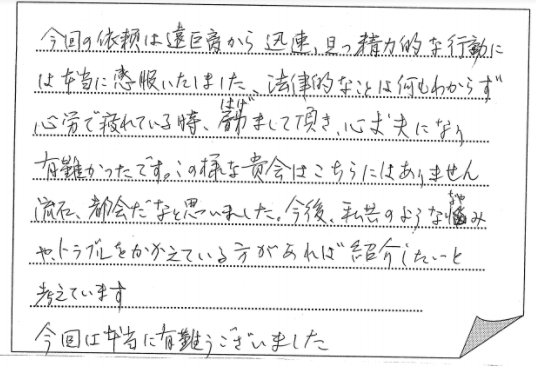 今回の依頼は遠距離から迅速、且つ精力的な行動に
は本当に感服いたしました、法律的なことは何もわからず
心労で疲れている時、励(はげ)まして頂き、心丈夫になり
有難かったです。この様な貴会はこちらにはありません
流石、都会だなと思いました。今後、私共のような悩(なや)み
や、トラブルをかかえている方があれば紹介したいと
考えています
今回は本当に有難うございました